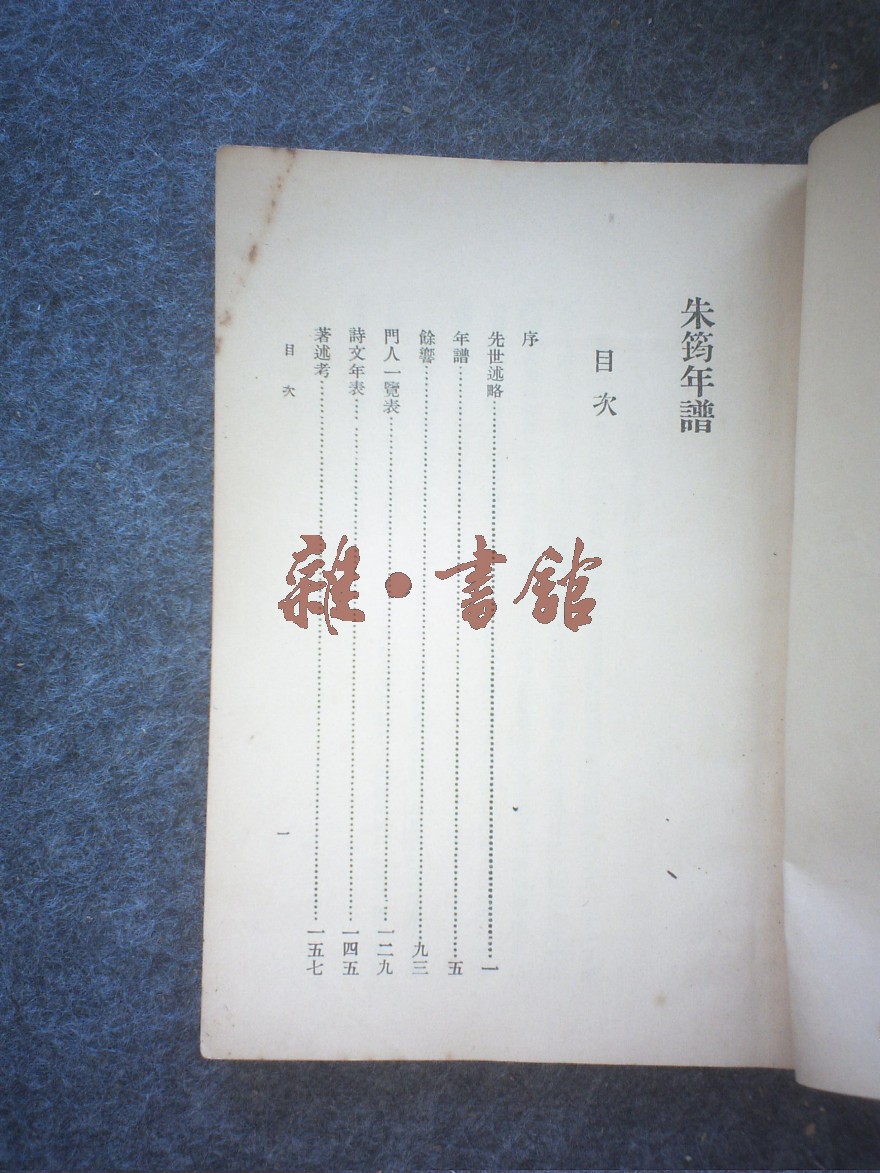 朱筠年譜
目次
序
先世述略……一
年譜……五
餘響……九三
門人一覽表……一二九
詩文年表……一四五
著述考……一五七
目次 一
雜·書館